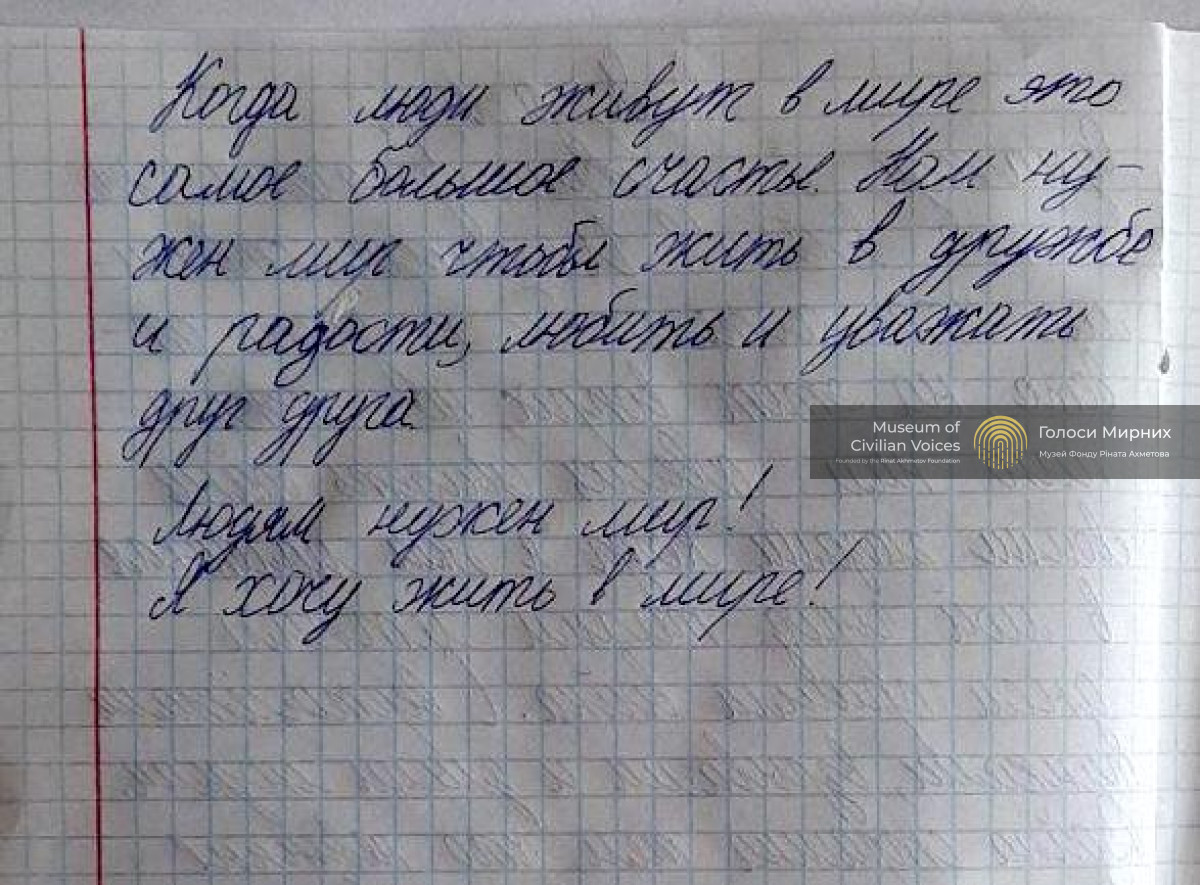 Когда люди живут в мире это
самое большое счастье. Нам ну-
жен мир чтобы жить в дружбе
и радости, любить и уважать
друг друга.
Людям нужен мир!
Я хочу жить в мире!
Museum of
Civilian Voices
Founded by the Rinat Akhmetov Foundation
Голоси Мирних
Музей Фонду Ріната Ахметова